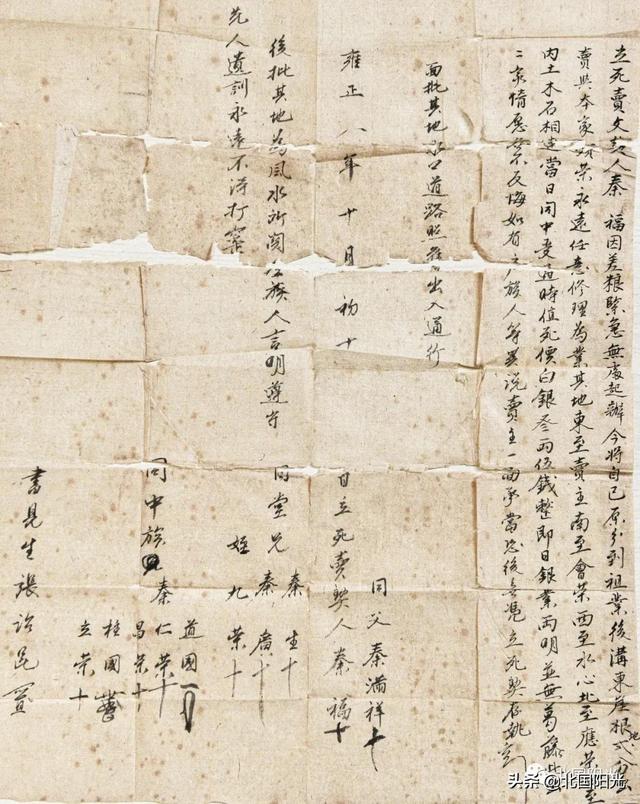 立死賣文契人秦 福因差粮緊急無處起辦今將自己原分到祖業後溝東崖根地弍分
賣與本家 榮永遠任意修理為業其地東至賣主南至會榮西至水心北至應榮四至
內土木石相連當日同中受過時值死價白銀叁両伍錢整即日銀業両明並無葛藤此係
二家情愿並不反悔如有戶族人等異說賣主一面承當恐後無凴立死契存執
西批其地水口道路照舊出入通行
雍正八年十月初十
日立死賣契人秦福十
同父秦滿祥十
後批其地為風水所関合族人言明遵守
先人遺訓永遠不得打窰
同堂兄秦生十
秦廣十
姪九榮十
同中族 秦
道國
仁榮十
昌榮十
桂國
立榮十
書見生張
头条 @北国阳光
北国阳光